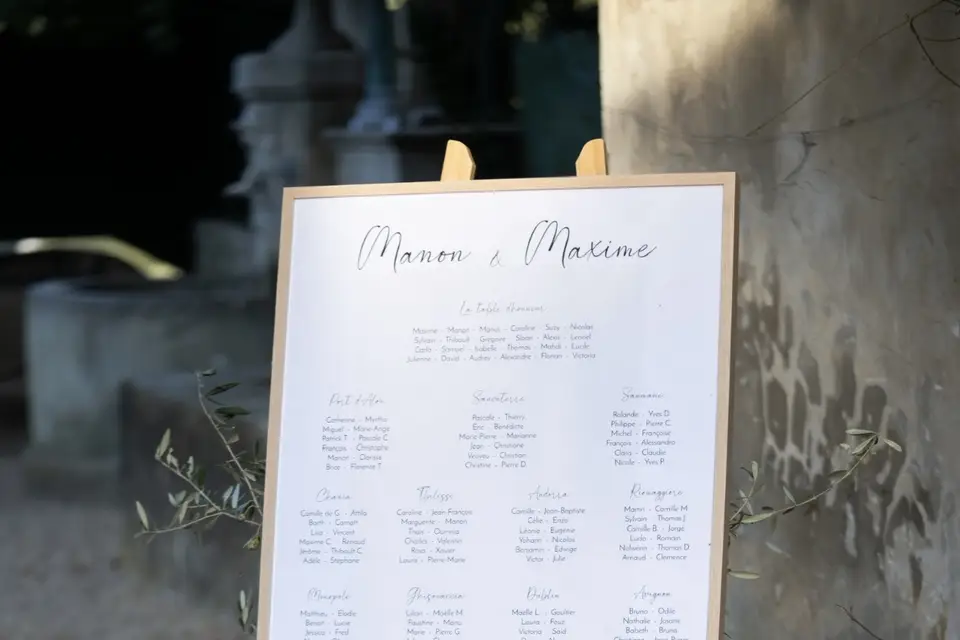 Manon & Maxime
La table d'honneur
Maxime - Manon - Manou - Caroline - Suzy - Nicolas
Sylvain - Thibault - Grégoire - Sloan - Alexis - Leonel
Carla - Samuel - Isabelle - Thomas - Mahdi - Lucile
Julienne - David - Audrey - Alexandre - Florian - Victoria
Port d'Alon
Catherine - Myrtha
Miguel - Marie-Ange
Patrick T. - Pascale C.
François - Christophe
Manon - Danick
Brice - Florence T.
Sauveterre
Pascale - Thierry
Eric - Bénédicte
Marie-Pierre - Marianne
Jean - Christiane
Christian
Christine - Pierre D.
Rolande - Yves D.
Philippe - Pierre C.
Michel - Françoise
François - Alexandra
Claris - Claudie
Nicole - Yves P.
Chania
Camille du G. - Attila
Barth -
Lisa - Vincent
Maxime C. - Renaud
Jérôme - Thibault C.
Adèle - Stéphane
Tbilissi
Caroline - Jean-François
Marguerite - Manon
Théo - Oumnia
Charles - Valentin
Rosa - Xavier
Laura - Pierre-Marie
Anderra
Camille - Jean-Baptiste
Célie - Enzo
Léonie - Eugénie
Yohann - Nicolas
Benjamin - Edwige
Victor - Julie
Riomaggiore
Marin - Camille M.
Sylvain - Thomas J.
Camille B. - Jorge
Ludo - Romain
Nolwenn - Thomas D.
Arnaud - Clémence
Minople
Matthieu - Elodie
Benoit - Lucie
Jessica - Fred
Ghisonaccia
Lilian - Maëlle M.
Faustine - Manu
Marie - Pierre G.
Dublin
Maëlle L. - Gautier
Laura - Fouz
Victoria - Saïd
Avignon
Bruno - Odile
Nathalie - Josiane
Babeth - Bruna